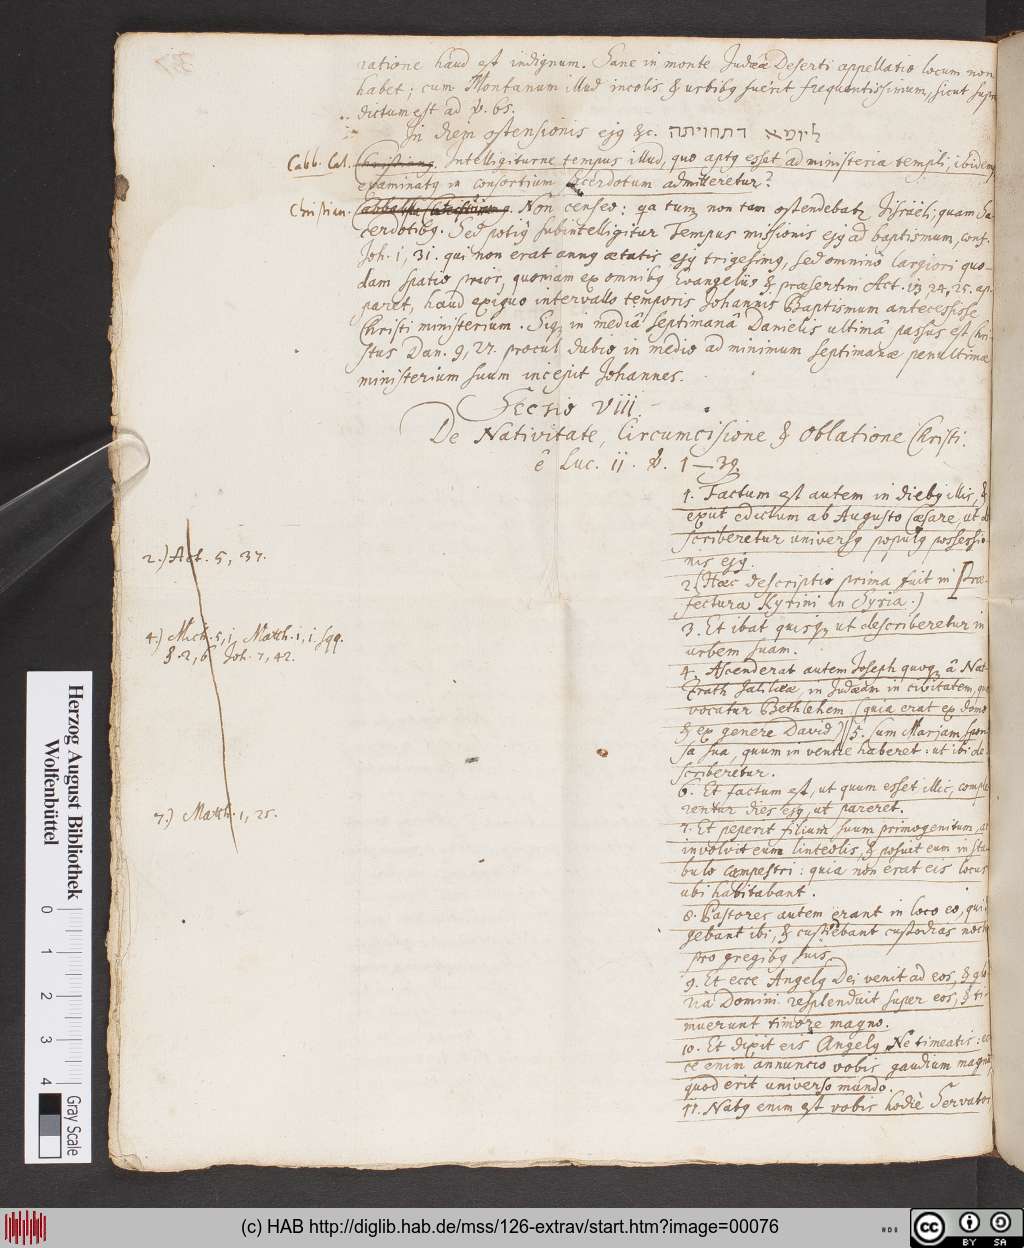 ratione haud est indignum. Sane in monte Judææ Deserti appellatio locum non
habet; cum Montanum illud incolis & urbibq fuerit frequentissimum, sicut supra
dictum est ad ℣. 65.
In diem ostensionis ejq &c. ליומא דתחויתה
Cabb. Cat. Christianq. Intelligiturne tempus illud, quo aptq esset ad ministeria templi, ibidemq
examinatq in consortium sacerdotum admitteretur?
Christian. Non censeo: qa tum non tam ostendebatur Israëli, quam Sa-
cerdotibq. Sed potiq subintelligitur Tempus missionis ejq ad baptismum, conf.
Joh. 1, 31. qui non erat annq ætatis ejq trigesimq, sed omnino largiori quo-
dam spatio prior, quoniam ex omnibq Evangeliis & præsertim Act. 13, 24, 25. ap-
paret, haud exiguo intervallo temporis Johannis Baptismum antecessisse
Christi ministerium. Sicq in mediâ septimanâ Danielis ultimâ passus est Chri-
stus Dan. 9, 27. procul dubio in medio ad minimum septimanæ penultimæ
ministerium suum incepit Johannes.
Sectio VIII.
De Nativitate, Circumcisione & Oblatione Christi.
è Luc. II. ℣. 1—39.
1. Factum est autem in diebq illis, &
exiit edictum ab Augusto Cæsare, ut de
scriberetur universq populq possessio-
nis ejq.
2.) Act. 5, 37.
2. (Hæc descriptio prima fuit in Præ-
fectura Kyrini in Syria.)
3. Et ibat quisq, ut describeretur in
urbem suam.
4.) Mich. 5, 1, Matth. 1, 1 sqq.
& 2, 6 Joh. 7, 42.
4. Ascenderat autem Joseph quoq, â Naz
erath Galilææ, in Judæam in civitatem, quæ
vocatur Bethlehem (quia erat ex domo
& ex genere David) 5. Cum Marjam spon
sa sua, quum in ventre haberet: ut ibi de
scriberetur.
6. Et factum est, ut quum esset illic, comple
rentur dies ejq, ut pareret.
7.) Matth. 1, 25.
7. Et peperit filium suum primogenitum, &
involvit eum linteolis, & posuit eum in sta
bulo campestri: quia non erat eis locus
ubi habitabant.
8. Pastores autem erant in loco eo, qui
gebant ibi, & custodiebant custodias noctis
pro gregibq suis.
9. Et ecce Angelq Dei venit ad eos, & glo
ria Domini resplenduit super eos, & ti-
muerunt timore magno.
10. Et dixit eis Angelq Ne timeatis: ec
ce enim annuncio vobis gaudium magnū,
quod erit universo mundo.
11. Natq enim est vobis hodiè Servator
Herzog August Bibliothek
Wolfenbüttel
0 1 2 3 4
Gray Scale
(c) HAB http://diglib.hab.de/mss/126-extrav/start.htm?image=00076
CC BY SA